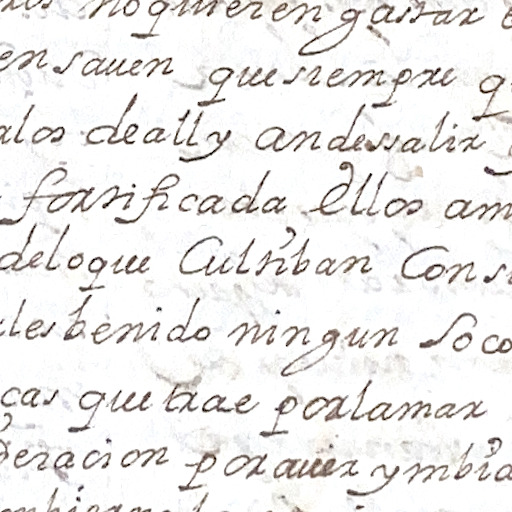 no quieren gastar
en sauen que siempre q
los de ally an dessalir
fortificada ellos am
de lo que Cultiban Cons
les benido ningun Soco
cas que trae por la mar
deracion por auer ymbia